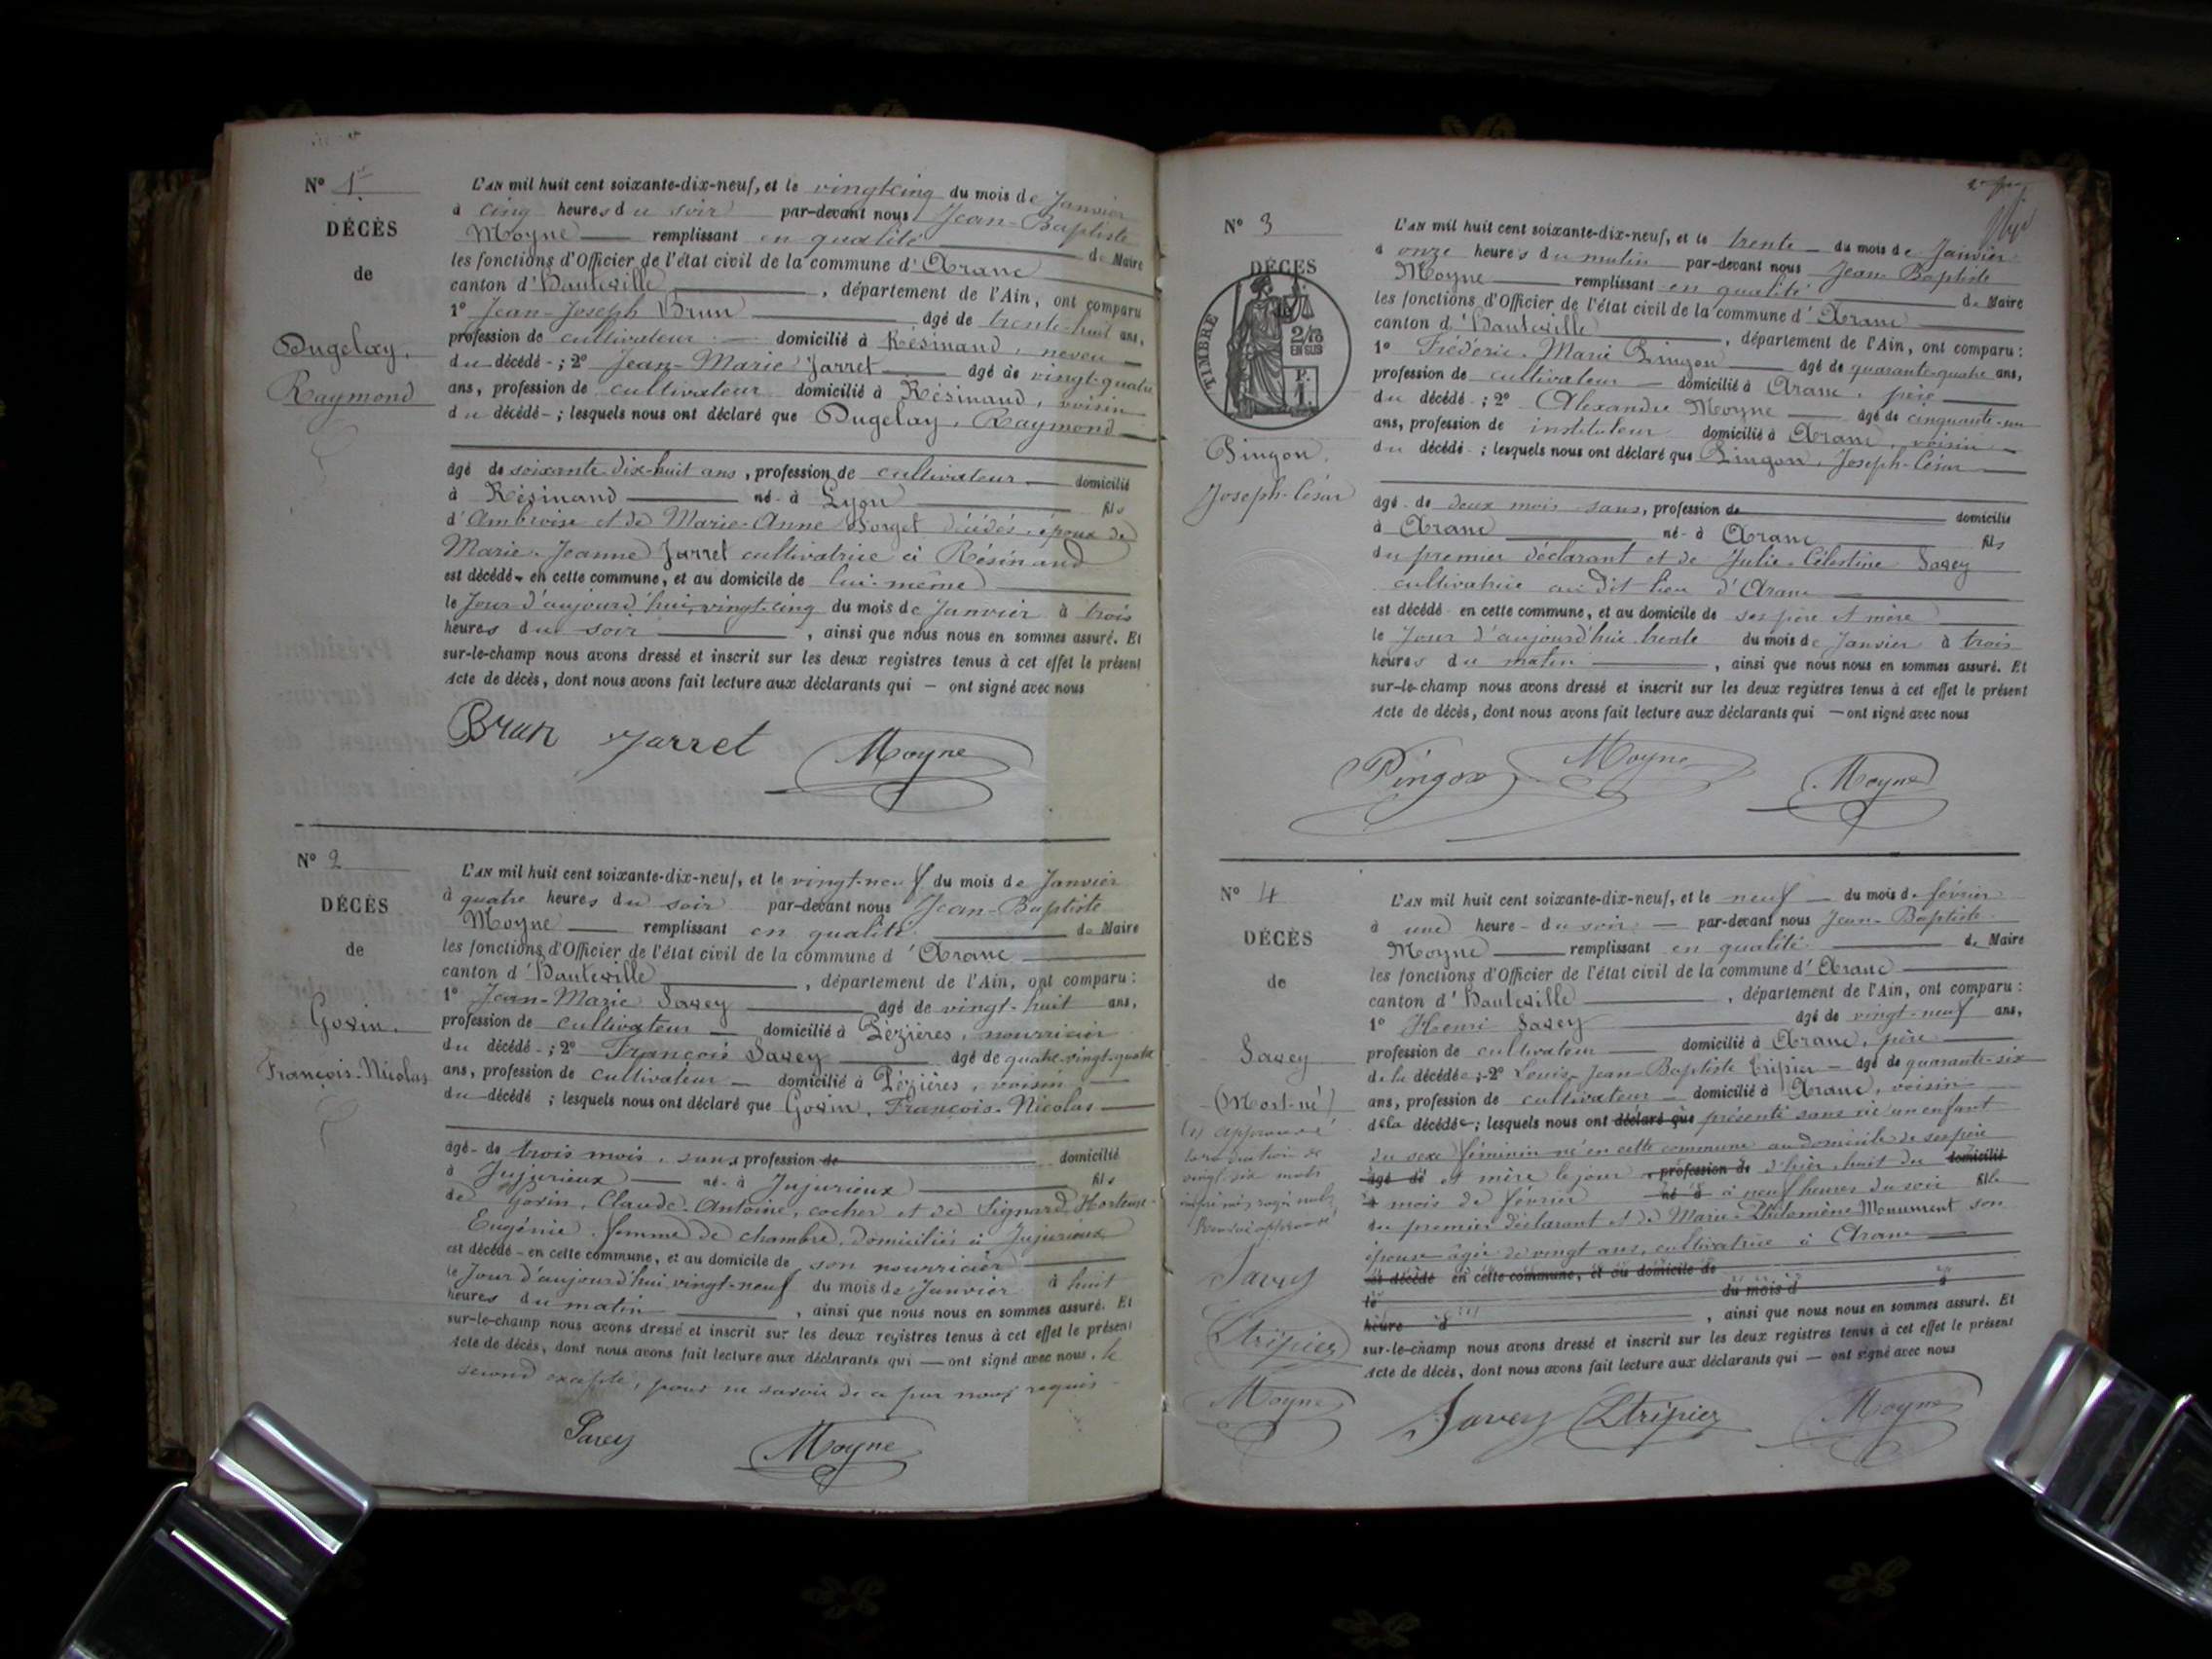 N° 1
DÉCÈS
de
Dugelay,
Raymond
L'AN mil huit cent soixante-dix-neuf, et le vingt-cinq du mois de Janvier
à cinq heures du soir par-devant nous Jean-Baptiste
Moyne remplissant en qualité de Maire
les fonctions d'Officier de l'état civil de la commune d'Aranc
canton d'Hauteville, département de l'Ain, ont comparu
1° Jean-Joseph Brun âgé de trente-huit ans,
profession de cultivateur domicilié à Résinand, neveu
du décédé ; 2° Jean-Marie Jarret âgé de vingt-quatre
ans, profession de cultivateur domicilié à Résinand, voisin
du décédé ; lesquels nous ont déclaré que Dugelay, Raymond
âgé de soixante-dix-huit ans, profession de cultivateur domicilié
à Résinand né à Lyon fils
d'Ambroise et de Marie-Anne Forget décédés, époux de
Marie-Jeanne Jarret cultivatrice à Résinand
est décédé en cette commune, et au domicile de lui-même
le Jour d'aujourd'hui vingt-cinq du mois de Janvier à trois
heures du soir, ainsi que nous nous en sommes assuré. Et
sur-le-champ nous avons dressé et inscrit sur les deux registres tenus à cet effet le présent
Acte de décès, dont nous avons fait lecture aux déclarants qui — ont signé avec nous
Brun Jarret Moyne
N° 2
DÉCÈS
de
Goxin,
François-Nicolas
L'AN mil huit cent soixante-dix-neuf, et le vingt-neuf du mois de Janvier
à quatre heures du soir par-devant nous Jean-Baptiste
Moyne remplissant en qualité de Maire
les fonctions d'Officier de l'état civil de la commune d'Aranc
canton d'Hauteville, département de l'Ain, ont comparu :
1° Jean-Marie Savey âgé de vingt-huit ans,
profession de cultivateur domicilié à Pézières, nourricier
du décédé ; 2° François Savey âgé de quatre-vingt-quatre
ans, profession de cultivateur domicilié à Pézières, voisin
du décédé ; lesquels nous ont déclaré que Goxin, François-Nicolas
âgé de trois mois, sans profession de domicilié
à Jujurieux né à Jujurieux fils
de Goxin, Claude-Antoine, cocher et de Signard, Hortense-
Eugénie, femme de chambre, domiciliés à Jujurieux
est décédé en cette commune, et au domicile de son nourricier
le Jour d'aujourd'hui vingt-neuf du mois de Janvier à huit
heures du matin, ainsi que nous nous en sommes assuré. Et
sur-le-champ nous avons dressé et inscrit sur les deux registres tenus à cet effet le présent
Acte de décès, dont nous avons fait lecture aux déclarants qui — ont signé avec nous, le
second excepté, pour ne savoir de ce par nous requis
Savey Moyne
N° 3
DÉCÈS
TIMBRE
2/10
EN SUS
P.
1.
Pingon,
Joseph-César
L'AN mil huit cent soixante-dix-neuf, et le trente du mois de Janvier
à onze heures du matin par-devant nous Jean-Baptiste
Moyne remplissant en qualité de Maire
les fonctions d'Officier de l'état civil de la commune d'Aranc
canton d'Hauteville, département de l'Ain, ont comparu :
1° Frédéric-Marie Pingon âgé de quarante-quatre ans,
profession de cultivateur domicilié à Aranc, père
du décédé ; 2° Alexandre Moyne âgé de cinquante-un
ans, profession de instituteur domicilié à Aranc, voisin
du décédé ; lesquels nous ont déclaré que Pingon, Joseph-César
âgé de deux mois sans, profession de domicilié
à Aranc né à Aranc fils
du premier déclarant et de Julie-Célestine Savey
cultivatrice au dit lieu d'Aranc
est décédé en cette commune, et au domicile de ses père et mère
le Jour d'aujourd'hui trente du mois de Janvier à trois
heures du matin, ainsi que nous nous en sommes assuré. Et
sur-le-champ nous avons dressé et inscrit sur les deux registres tenus à cet effet le présent
Acte de décès, dont nous avons fait lecture aux déclarants qui — ont signé avec nous
Pingon Moyne Moyne
N° 4
DÉCÈS
de
Savey
(Mort-né)
approuvé
la rature de
vingt-six mots
Savey
Etripier
Moyne
L'AN mil huit cent soixante-dix-neuf, et le neuf du mois de février
à une heure du soir par-devant nous Jean-Baptiste
Moyne remplissant en qualité de Maire
les fonctions d'Officier de l'état civil de la commune d'Aranc
canton d'Hauteville, département de l'Ain, ont comparu :
1° Henri Savey âgé de vingt-neuf ans,
profession de cultivateur domicilié à Aranc, père
de la décédée ; 2° Louis-Jean-Baptiste Etripier âgé de quarante-six
ans, profession de cultivateur domicilié à Aranc, voisin
de la décédée ; lesquels nous ont déclaré que présenté sans vie un enfant
du sexe féminin né en cette commune au domicile de ses père
âgé de et mère le jour , profession de d'hier, huit du domicilié
à mois de février né à à neuf heures du soir fille
du premier déclarant et de Marie-Philomène Monument son
épouse âgée de vingt ans, cultivatrice à Aranc
est décédé en cette commune, et au domicile de
le du mois d à
heure d , ainsi que nous nous en sommes assuré. Et
sur-le-champ nous avons dressé et inscrit sur les deux registres tenus à cet effet le présent
Acte de décès, dont nous avons fait lecture aux déclarants qui — ont signé avec nous
Savey Etripier Moyne